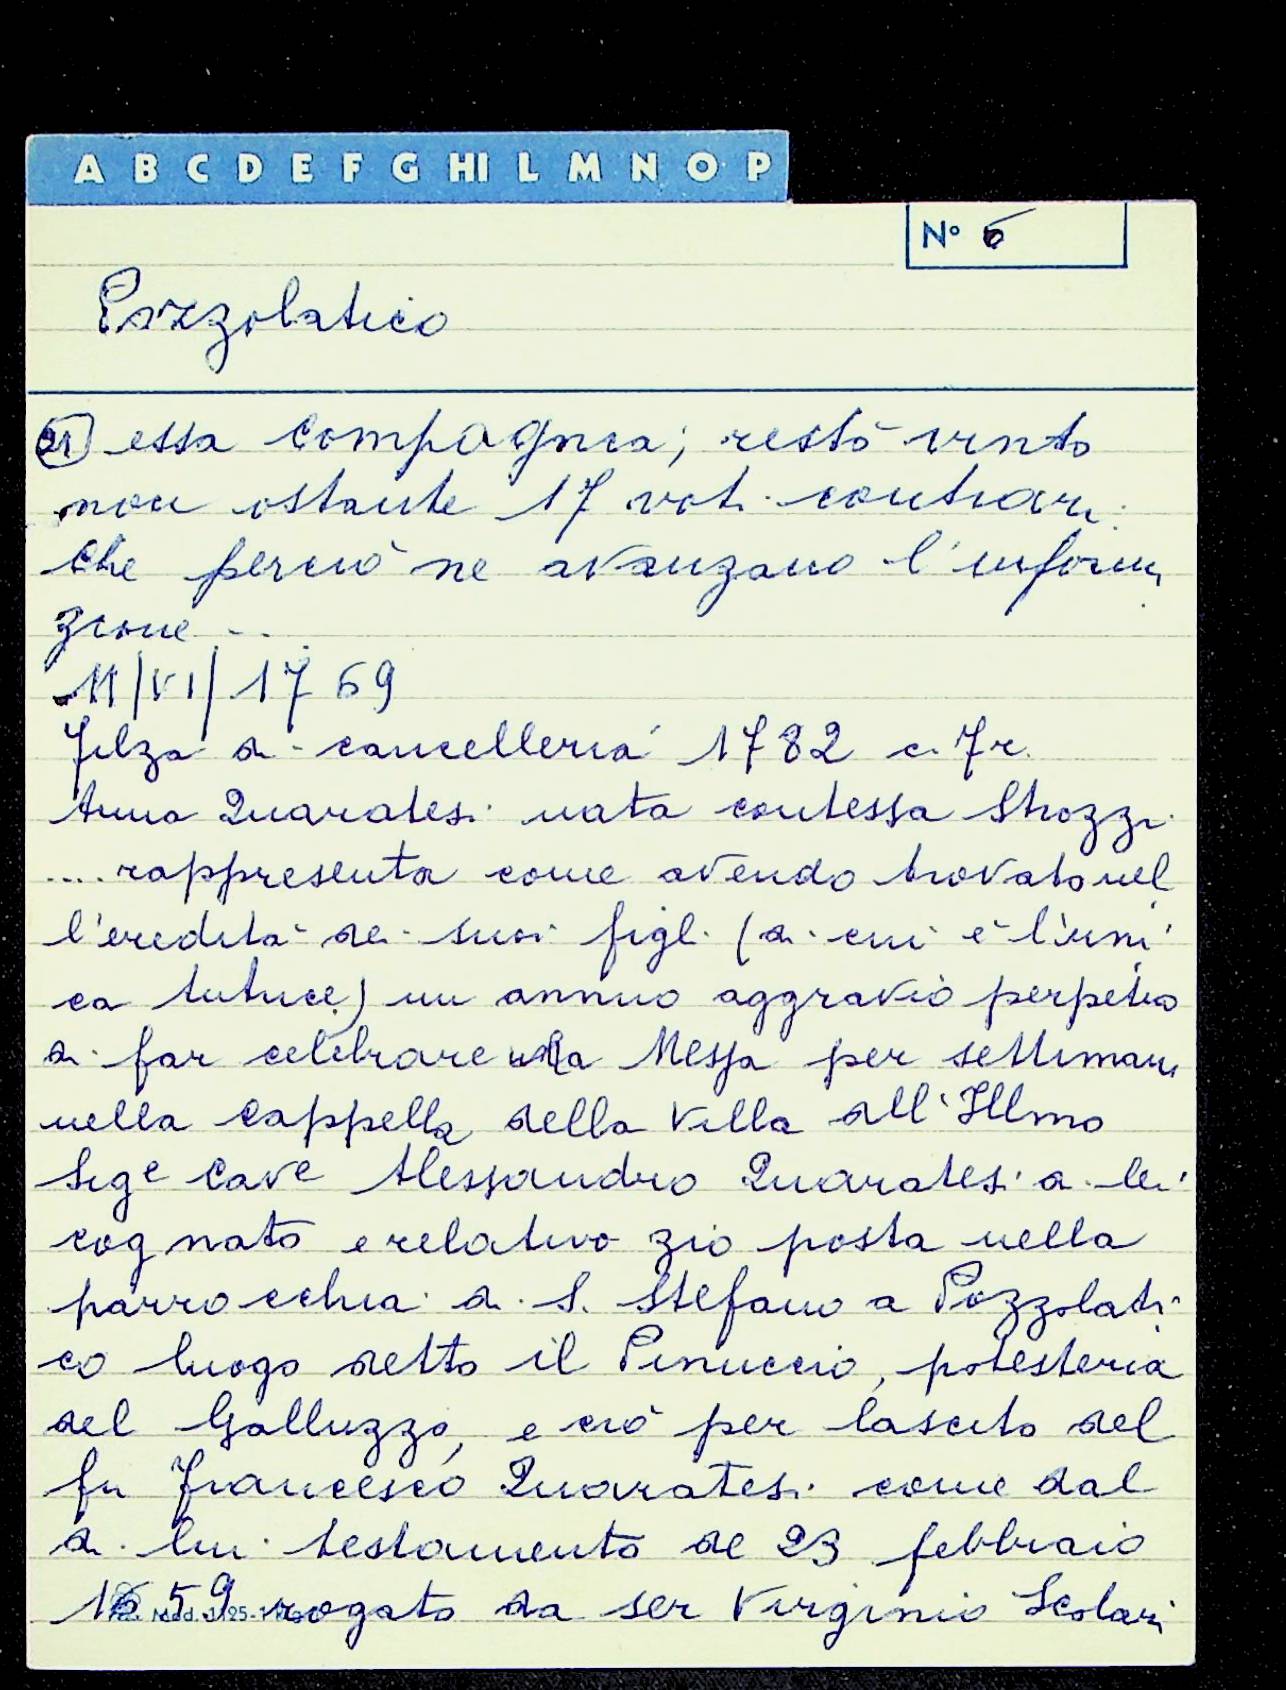 A B C D E F G HI L M N O P
N° 6
Pozzolatico
21 essa compagnia; restò vinto
non ostante 17 voti contrari.
che perciò ne avanzano l'informa
zione...
11/VI/1769
Filza di cancelleria 1782 c. 7r.
Anna Quaratesi nata contessa Strozzi
....rappresenta come avendo trovato nel
l'eredità dei suoi figli (di cui è l'uni
ca tutrice) un annuo aggravio perpetuo
di far celebrare una Messa per settimana
nella Cappella della Villa dell'Illmo
Sige Cave Alessandro Quaratesi a lei
cognato e relativo zio posta nella
parrocchia di S. Stefano a Pozzolati
co luogo detto il Pinuccio, potesteria
del Galluzzo, e ciò per lascito del
fu Francesco Quaratesi come dal
di lui testamento de 23 febbraio
1659 rogato da ser Virginio Scolari